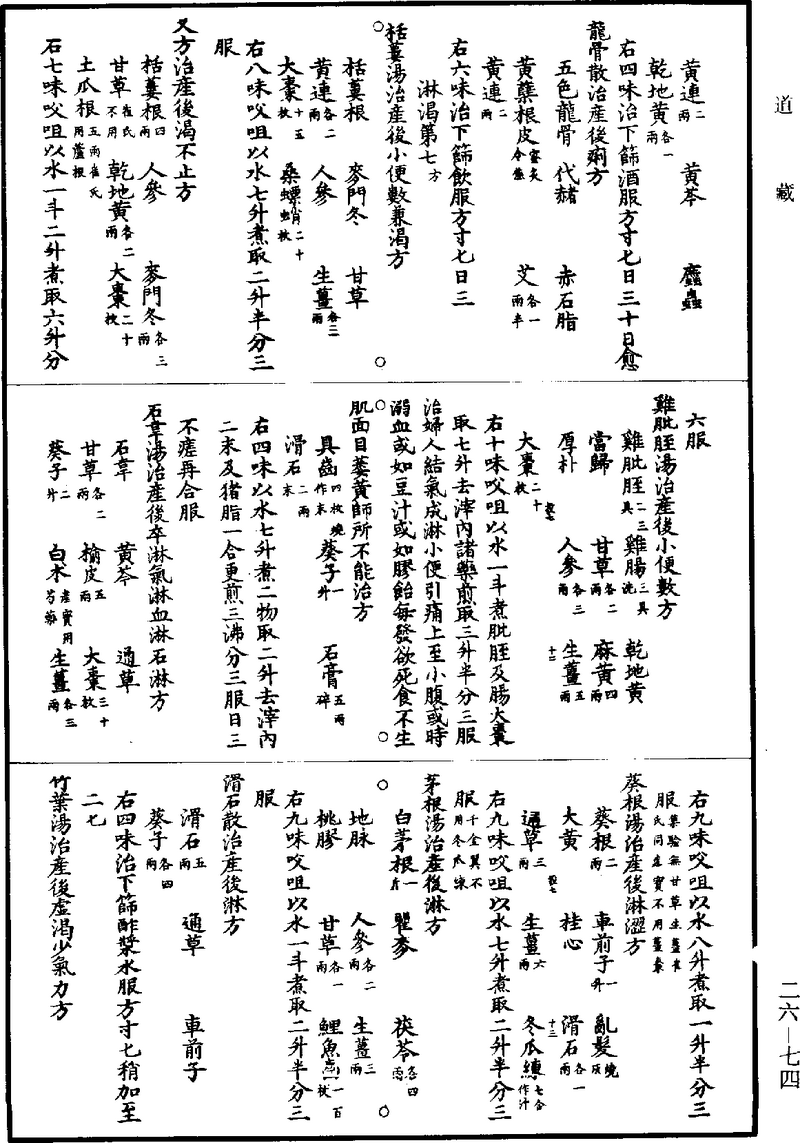 道藏
黃連二兩 黃芩 䗪蟲
乾地黃各一兩
右四味治下篩酒服方寸匕日三十日愈
龍骨散治產後痢方
五色龍骨 代赭 赤石脂
黃蘗根皮蜜炙令焦 艾各一兩半
黃連二兩
右六味治下篩飲服方寸匕日三
淋渴第七方
○栝蔞湯治產後小便數兼渴方○
栝蔞根 麥門冬 甘草
黃連各二兩 人參 生薑各三兩
大棗十五枚 桑螵蛸二十枚
右八味㕮咀以水七升煮取二升半分三
服
又方治產後渴不止方
栝蔞根四兩 人參 麥門冬各三兩
甘草崔氏不用 乾地黃各二兩 大棗二十枚
土瓜根五兩崔氏用蘆根
右七味㕮咀以水一斗二升煮取六升分
六服
雞肶胵湯治產後小便數方
雞肶胵二三具 雞腸三具洗 乾地黃
當歸 甘草各二兩 麻黃四兩
厚朴 人參各三兩 生薑五兩
大棗二十枚
右十味㕮咀以水一斗煮肶胵及腸大棗
取七升去滓內諸藥煎取三升半分三服
治婦人結氣成淋小便引痛上至小腹或時
溺血或如豆汁或如膠飴每發欲死食不生
○肌面目萎黃師所不能治方○
具齒四枚燒作末 葵子一升 石膏五兩碎
滑石二兩末
右四味以水七升煮二物取二升去滓內
二末及猪脂一合更煎三沸分三服日三
不瘥再合服
石韋湯治產後卒淋氣淋血淋石淋方
石韋 黃芩 通草
甘草各二兩 榆皮五兩 大棗三十枚
葵子二升 白术產寶用芍藥 生薑各三兩
右九味㕮咀以水八升煮取一升半分三
服集驗無甘草生薑崔氏同產寶不用薑棗
葵根湯治產後淋澀方
葵根二兩 車前子一升 亂髮燒灰
大黃 桂心 滑石各一兩
通草三兩 生薑六兩 冬瓜練七合作汁
右九味㕮咀以水七升煮取二升半分三
服千金翼不用冬瓜練
茅根湯治產後淋方
○白茅根一斤 瞿麥 茯苓各四兩
地脉 人參各二兩 生薑三兩
桃膠 甘草各一兩 鯉魚齒一百枚○
右九味㕮咀以水一斗煮取二升半分三
服
滑石散治產後淋方
滑石五兩 通草 車前子
葵子各四兩
右四味治下篩酢漿水服方寸匕稍加至
二匕
竹葉湯治產後虛渴少氣力方
二六—七四